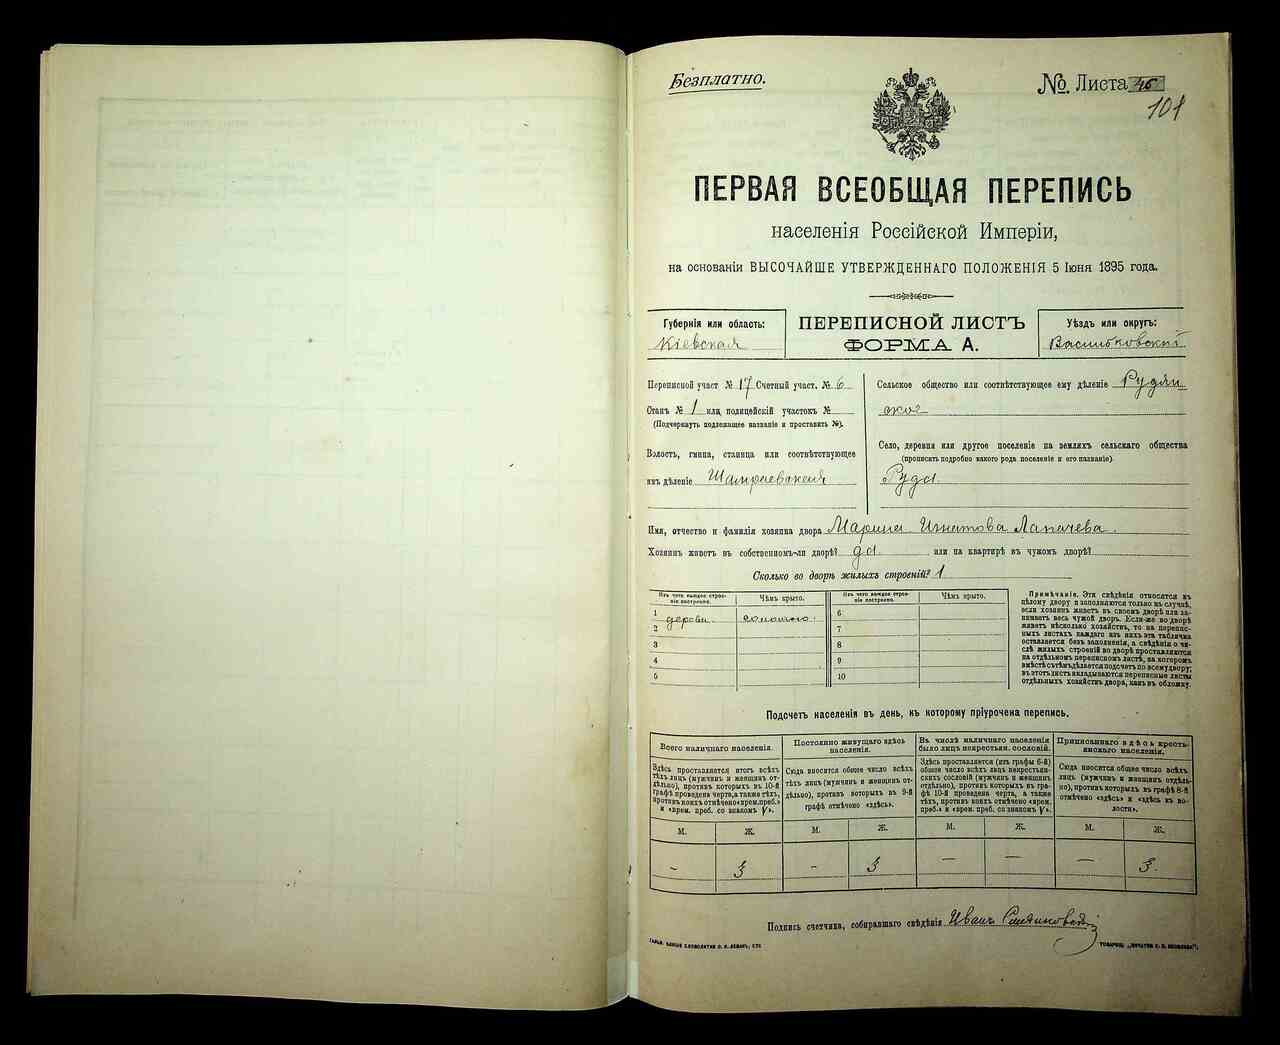 Безплатно.
№. Листа 46
101
ПЕРВАЯ ВСЕОБЩАЯ ПЕРЕПИСЬ
населенія Россійской Имперіи,
на основаніи ВЫСОЧАЙШЕ УТВЕРЖДЕННАГО ПОЛОЖЕНІЯ 5 Іюня 1895 года.
Губернія или область:
Кіевская
ПЕРЕПИСНОЙ ЛИСТЪ
ФОРМА А.
Уѣздъ или округъ:
Васильковскій
Переписной участ № 17 Счетный участ. № 6
Станъ № 1 или полицейскій участокъ №
(Подчеркнуть подлежащее названіе и проставить №).
Волость, гмина, станица или соотвѣтствующее
имъ дѣленіе Шамраевская
Сельское общество или соотвѣтствующее ему дѣленіе Рудян
ское
Село, деревня или другое поселеніе на земляхъ сельскаго общества
(прописать подробно какого рода поселеніе и его названіе).
Руда.
Имя, отчество и фамилія хозяина двора Марина Игнатова Лапачева.
Хозяинъ живетъ въ собственномъ-ли дворѣ? да или на квартирѣ въ чужомъ дворѣ?
Сколько во дворѣ жилыхъ строеній? 1
Изъ чего каждое строе-
ніе построено.
Чѣмъ крыто.
Изъ чего каждое строе-
ніе построено.
Чѣмъ крыто.
1 дерева. соломою.
2
3
4
5
6
7
8
9
10
Примѣчаніе. Эти свѣдѣнія относятся къ
цѣлому двору и заполняются только въ случаѣ,
если хозяинъ живетъ въ своемъ дворѣ или за-
нимаетъ весь чужой дворъ. Если-же во дворѣ
живетъ нѣсколько хозяйствъ, то на перепис-
ныхъ листахъ каждаго изъ нихъ эта табличка
оставляется безъ заполненія, а свѣдѣнія о чи-
слѣ жилыхъ строеній во дворѣ проставляются
на отдѣльномъ переписномъ листѣ, на которомъ
вмѣстѣ съ тѣмъ дѣлается подсчетъ по всему двору;
въ этотъ листъ вкладываются переписные листы
отдѣльныхъ хозяйствъ двора, какъ въ обложку.
Подсчетъ населенія въ день, къ которому пріурочена перепись.
Всего наличнаго населенія.
Здѣсь проставляется итогъ всѣхъ
тѣхъ лицъ (мужчинъ и женщинъ от-
дѣльно), противъ которыхъ въ 10-й
графѣ проведена черта, а также тѣхъ,
противъ коихъ отмѣчено «врем. преб.»
и «врем. преб. со знакомъ V».
Постоянно живущаго здѣсь
населенія.
Сюда вносится общее число всѣхъ
тѣхъ лицъ (мужчинъ и женщинъ от-
дѣльно), противъ которыхъ въ 9-й
графѣ отмѣчено «здѣсь».
Въ числѣ наличнаго населенія
было лицъ некрестьян. сословій.
Здѣсь проставляется (изъ графы 6-й)
общее число всѣхъ лицъ некрестьян-
скихъ сословій (мужчинъ и женщинъ
отдѣльно), противъ которыхъ въ гра-
фѣ 10-й проведена черта, а также
тѣхъ, противъ коихъ отмѣчено «врем.
преб.» и «врем. преб. со знакомъ V».
Приписаннаго здѣсь кресть-
янскаго населенія.
Сюда вносится общее число всѣхъ
лицъ (мужчинъ и женщинъ отдѣль-
но), противъ которыхъ въ графѣ 8-й
отмѣчено «здѣсь» и «здѣсь къ во-
лости».
М. Ж. М. Ж. М. Ж. М. Ж.
– 3 – 3 – – – 3.
Подпись счетчика, собиравшаго свѣдѣнія Иванъ